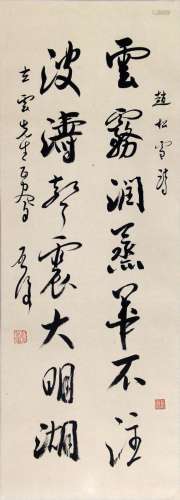 趙松雪詩
雲霧潤蒸華不注
波濤聲震大明湖
立雲先生正